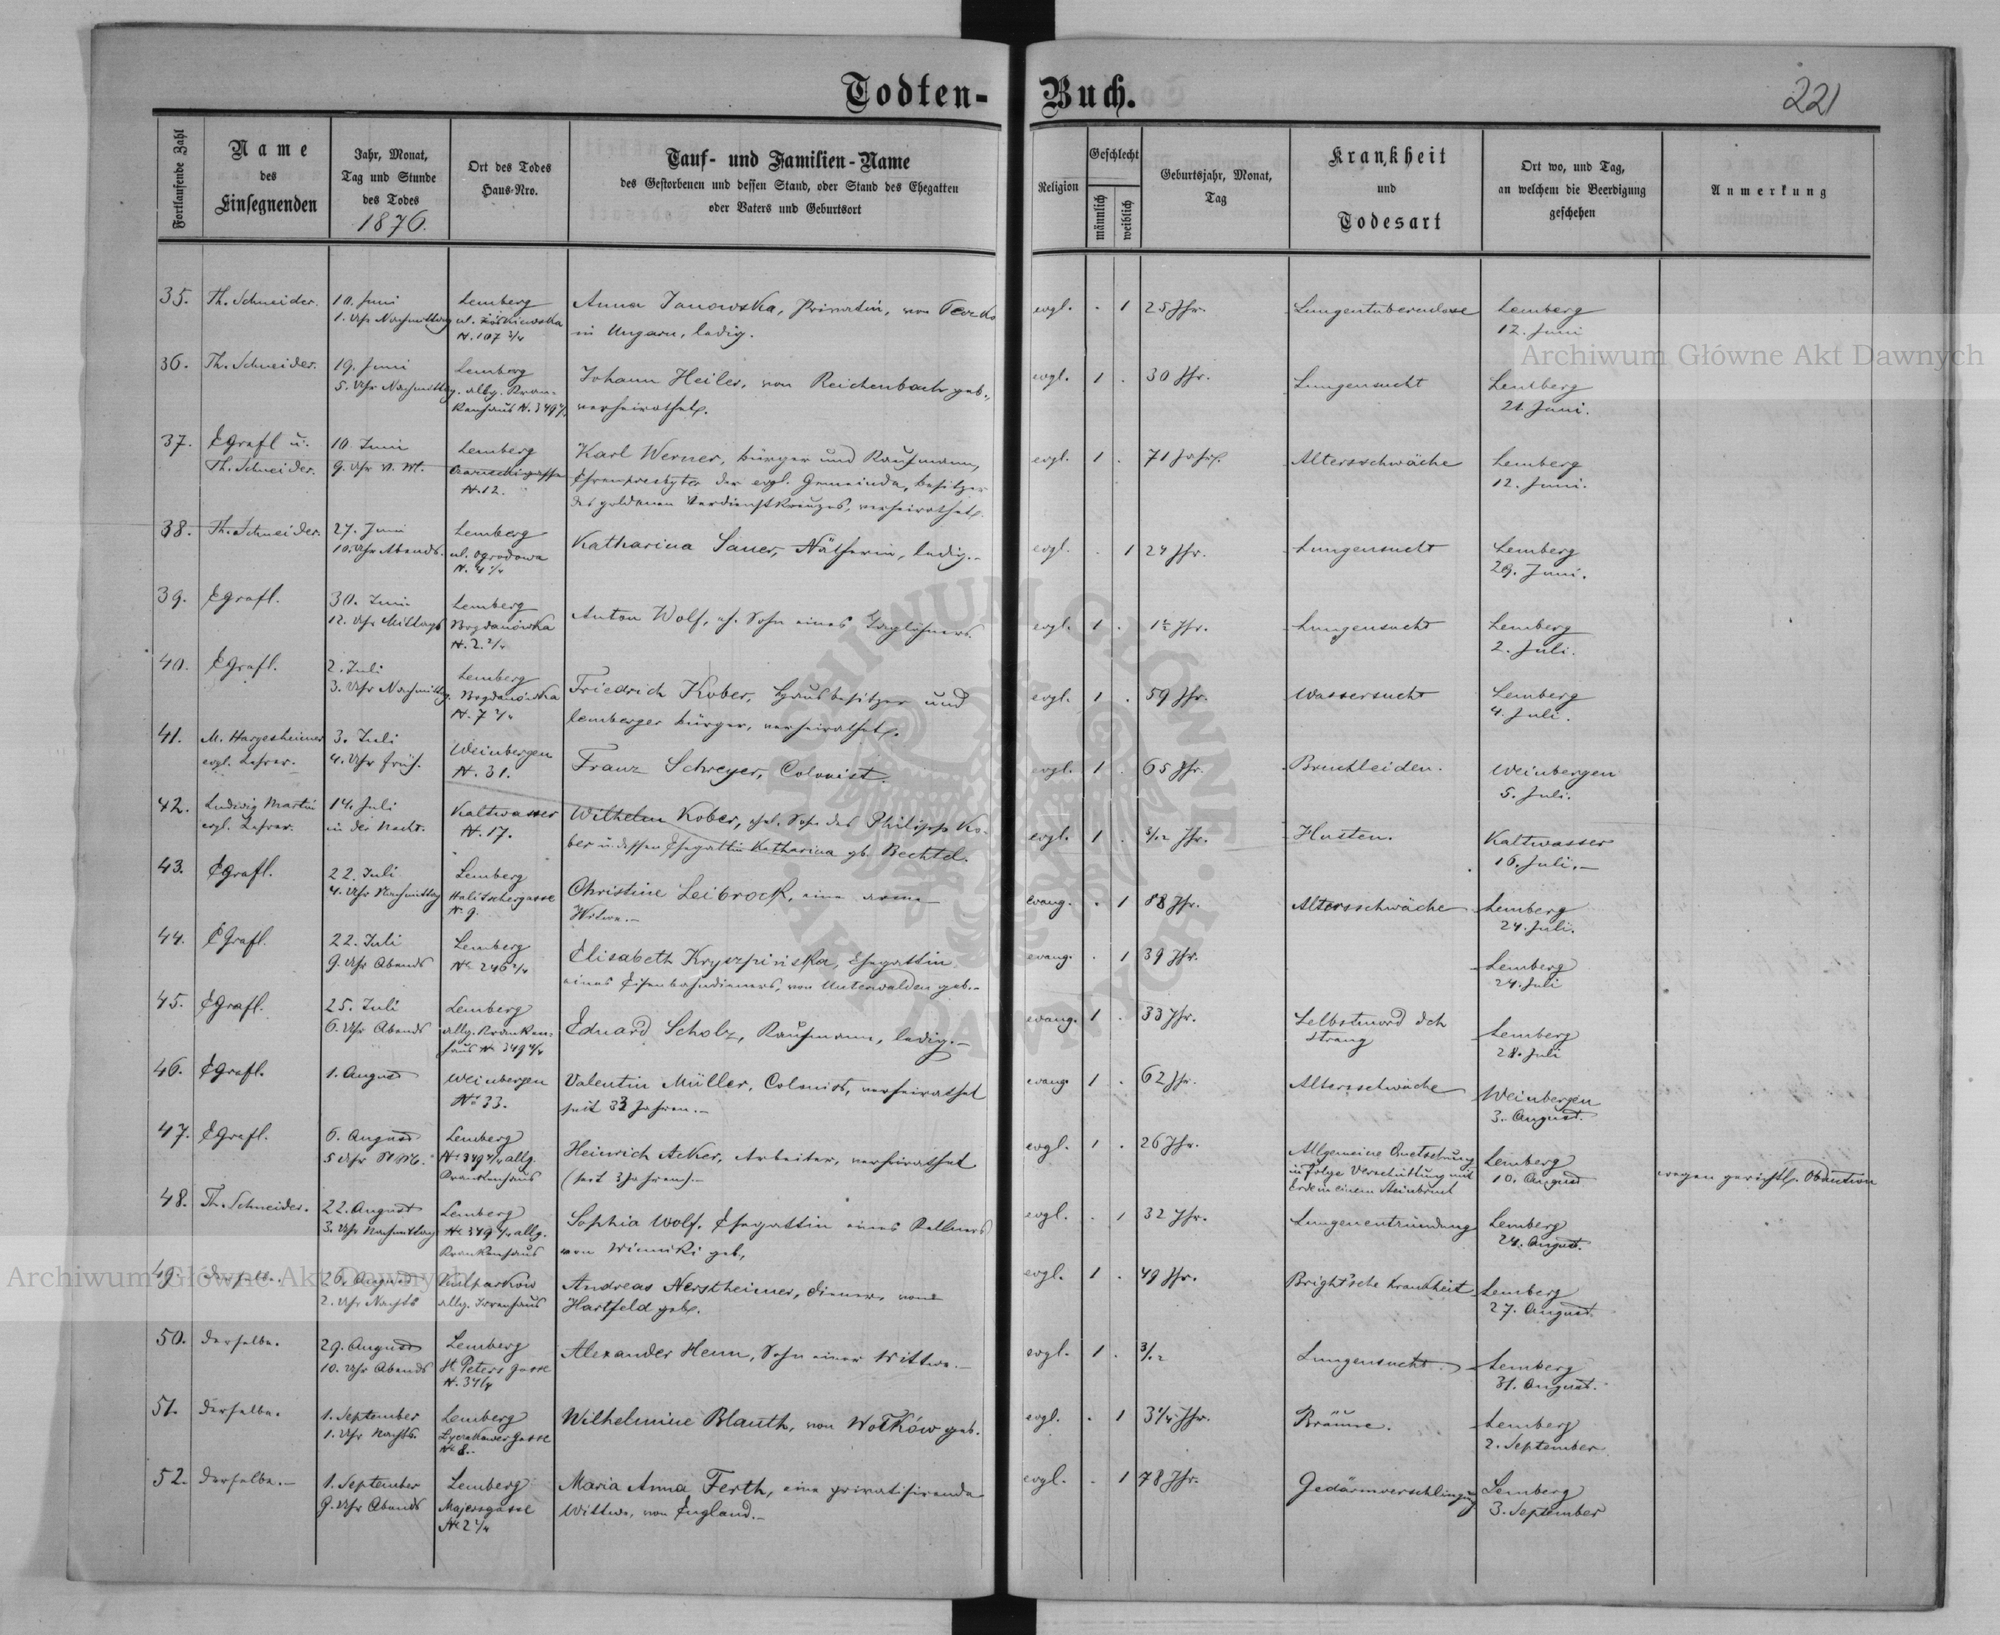 Todten-Buch.
221
Fortlaufende Zahl
Name
des
Einsegnenden
Jahr, Monat,
Tag und Stunde
des Todes
1876.
Ort des Todes
Haus-Nro.
Tauf- und Familien-Name
des Gestorbenen und dessen Stand, oder Stand des Ehegatten
oder Vaters und Geburtsort
Religion
Geschlecht
männlich
weiblich
Geburtsjahr, Monat,
Tag
Krankheit
und
Todesart
Ort wo, und Tag,
an welchem die Beerdigung
geschehen
Anmerkung
35. Th. Schneider. 10. Juni Lemberg Anna Janowska, Privatin, von evgl. . 1 25 Jhr. Lungentuberculose Lemberg
1. Uhr Nachmittag ul. Żółkiewska in Ungarn, ledig. 12. Juni
N. 107 2/4
36. Th. Schneider. 19. Juni Lemberg Johann Heiler, von Reichenbach geb., evgl. 1 . 30 Jhr. Lungensucht Lemberg
5. Uhr Nachmittag allg. Kran- verheirathet. 21. Juni.
kenhaus N. 349 4/4
37. EGrafl u. 10. Juni Lemberg Karl Werner, Bürger und Kaufmann, evgl. 1 . 71 Jahre. Altersschwäche Lemberg
Th. Schneider. 9. Uhr V. M. N. 12. Ehrenpresbyter der evgl. Gemeinde, Besitzer 12. Juni.
des goldenen Verdienstkreuzes, verheirathet.
38. Th. Schneider. 27. Juni Lemberg Katharina Sauer, Nätherin, ledig.- evgl. . 1 24 Jhr. Lungensucht Lemberg
10. Uhr Abends. ul. Ogrodowa 29. Juni.
39. EGrafl. 30. Juni Lemberg Anton Wolf, eh. Sohn eines Taglöhners. evgl. 1 . Jhr. Lungensucht Lemberg
12. Uhr Mittags Bogdanówka 2. Juli.
N. 2. 2/4
40. EGrafl. 2. Juli Lemberg Friedrich Kober, Hausbesitzer und evgl. 1 . 59 Jhr. Wassersucht Lemberg
3. Uhr Nachmittag. Bogdanówka lemberger Bürger, verheirathet. 4. Juli.
N. 7 2/4
41. M. Hargesheimer 3. Juli Weinbergen Franz Schreyer, Colonist. evgl. 1 . 65 Jhr. Bruchleiden. Weinbergen
evgl. Lehrer. 4. Uhr früh. N. 31. 5. Juli.
42. Ludwig Martin 14. Juli Kaltwasser Wilhelm Kober, ehel. Sohn des Philipp Ko- evgl. 1 . 5/12 Jhr. Husten. Kaltwasser
evgl. Lehrer. in der Nacht. N. 17. ber u. dessen Ehegattin Katharina gb. Bechtel. 16. Juli.-
43. EGrafl. 22. Juli Lemberg Christine Leibrock, eine arme evang. . 1 88 Jhr. Altersschwäche Lemberg
4. Uhr Nachmittag Halitschergasse Witwe.- 24. Juli.
N. 9.
44. EGrafl. 22. Juli Lemberg Elisabeth Ehegattin evang. . 1 39 Jhr. Lemberg
9. Uhr Abends No 246 2/4 eines Eisenbahndieners, von Unterwalden geb.- 24. Juli
45. EGrafl. 25. Juli Lemberg Eduard Scholz, Kaufmann, ledig.- evang. 1 . 33 Jhr. Selbstmord dch Lemberg
6. Uhr Abends allg. Kranken- Strang 28. Juli
haus N. 349 4/4
46. EGrafl. 1. August Weinbergen Valentin Müller, Colonist, verheirathet evang. 1 . 62 Jhr. Altersschwäche Weinbergen
No 33. seit 33 Jahren.- 3. August.
47. EGrafl. 6. August Lemberg Heinrich Acker, Arbeiter, verheirathet evgl. 1 . 26 Jhr. Allgemeine Quetschung Lemberg wegen gerichtl. Obduction
5 Uhr NM. No 349 4/4 allg. (seit 3 Jahren).- in Folge Verschüttung mit 10. August
Krankenhaus Erde in einem Steinbruch
48. Th. Schneider. 22. August Lemberg Sophia Wolf, Ehegattin eines Kellners evgl. . 1 32 Jhr. Lungenentzündung Lemberg
3. Uhr Nachmittag No 349 4/4 allg. von Winniki geb. 24. August.
Krankenhaus
49. derselbe. 26. August Kulparków Andreas Nerstheimer, Diener, von evgl. 1 . 49 Jhr. Bright'sche Krankheit Lemberg
2. Uhr Nachts allg. Irrenhaus Hartfeld geb. 27. August.
50. derselbe. 29. August Lemberg Alexander Henn, Sohn einer Wittwe.- evgl. 1 . 3/12 Lungensucht. Lemberg
10. Uhr Abends St Peters Gasse 31. August.
51. derselbe. 1. September Lemberg Wilhelmine Blauth, von Wołków geb. evgl. . 1 3 1/4 Jhr. Bräune. Lemberg
1. Uhr Nachts. Lyczakower Gasse 2. September
No 8.-
52. derselbe.- 1. September Lemberg Maria Anna Ferth, eine privatisirende evgl. . 1 78 Jhr. Gedärmverschlingung Lemberg
9. Uhr Abends Majersgasse Wittwe, von England.- 3. September
No 2 2/4
Archiwum Główne Akt Dawnych
Archiwum Główne Akt Dawnych
ARCHIWUM GŁÓWNE AKT DAWNYCH